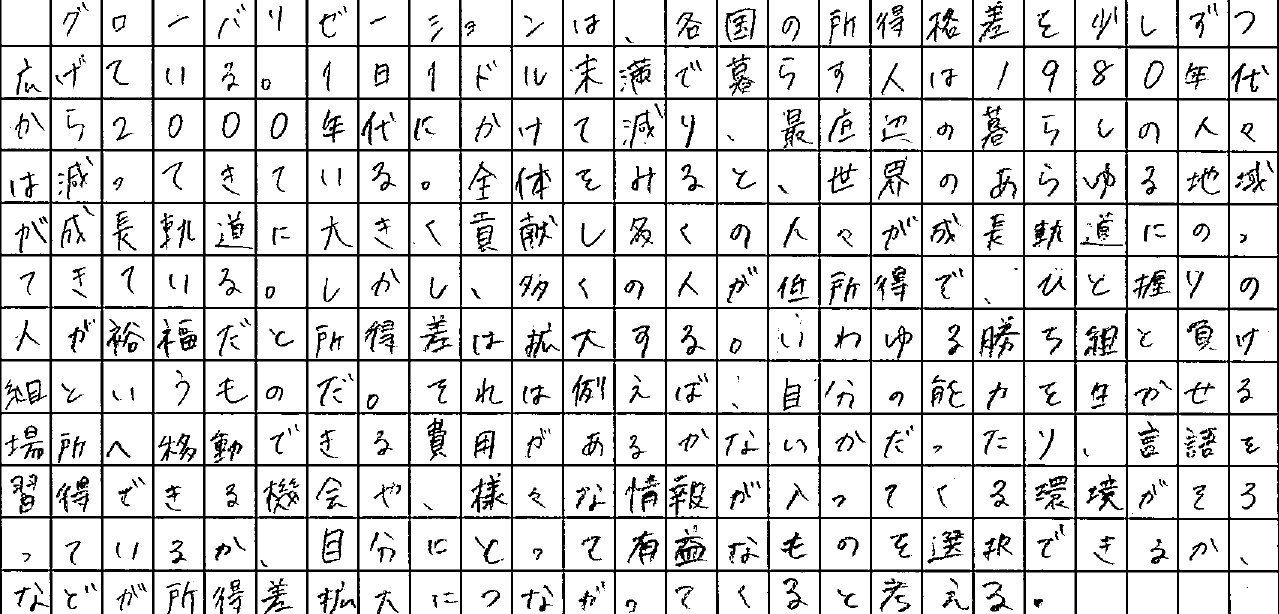 グローバリゼーションは、各国の所得格差を少しずつ
広げている。1日1ドル未満で暮らす人は1980年代
から2000年代にかけて減り、最底辺の暮らしの人々
は減ってきている。全体をみると、世界のあらゆる地域
が成長軌道に大きく貢献し多くの人々が成長軌道にのっ
てきている。しかし、多くの人が低所得で、ひと握りの
人が裕福だと所得差は拡大する。いわゆる勝ち組と負け
組というものだ。それは例えば、自分の能力を生かせる
場所へ移動できる費用があるかないかだったり、言語を
習得できる機会や、様々な情報が入ってくる環境がそろ
っているか、自分にとって有益なものを選択できるか、
などが所得差拡大につながってくると考える。